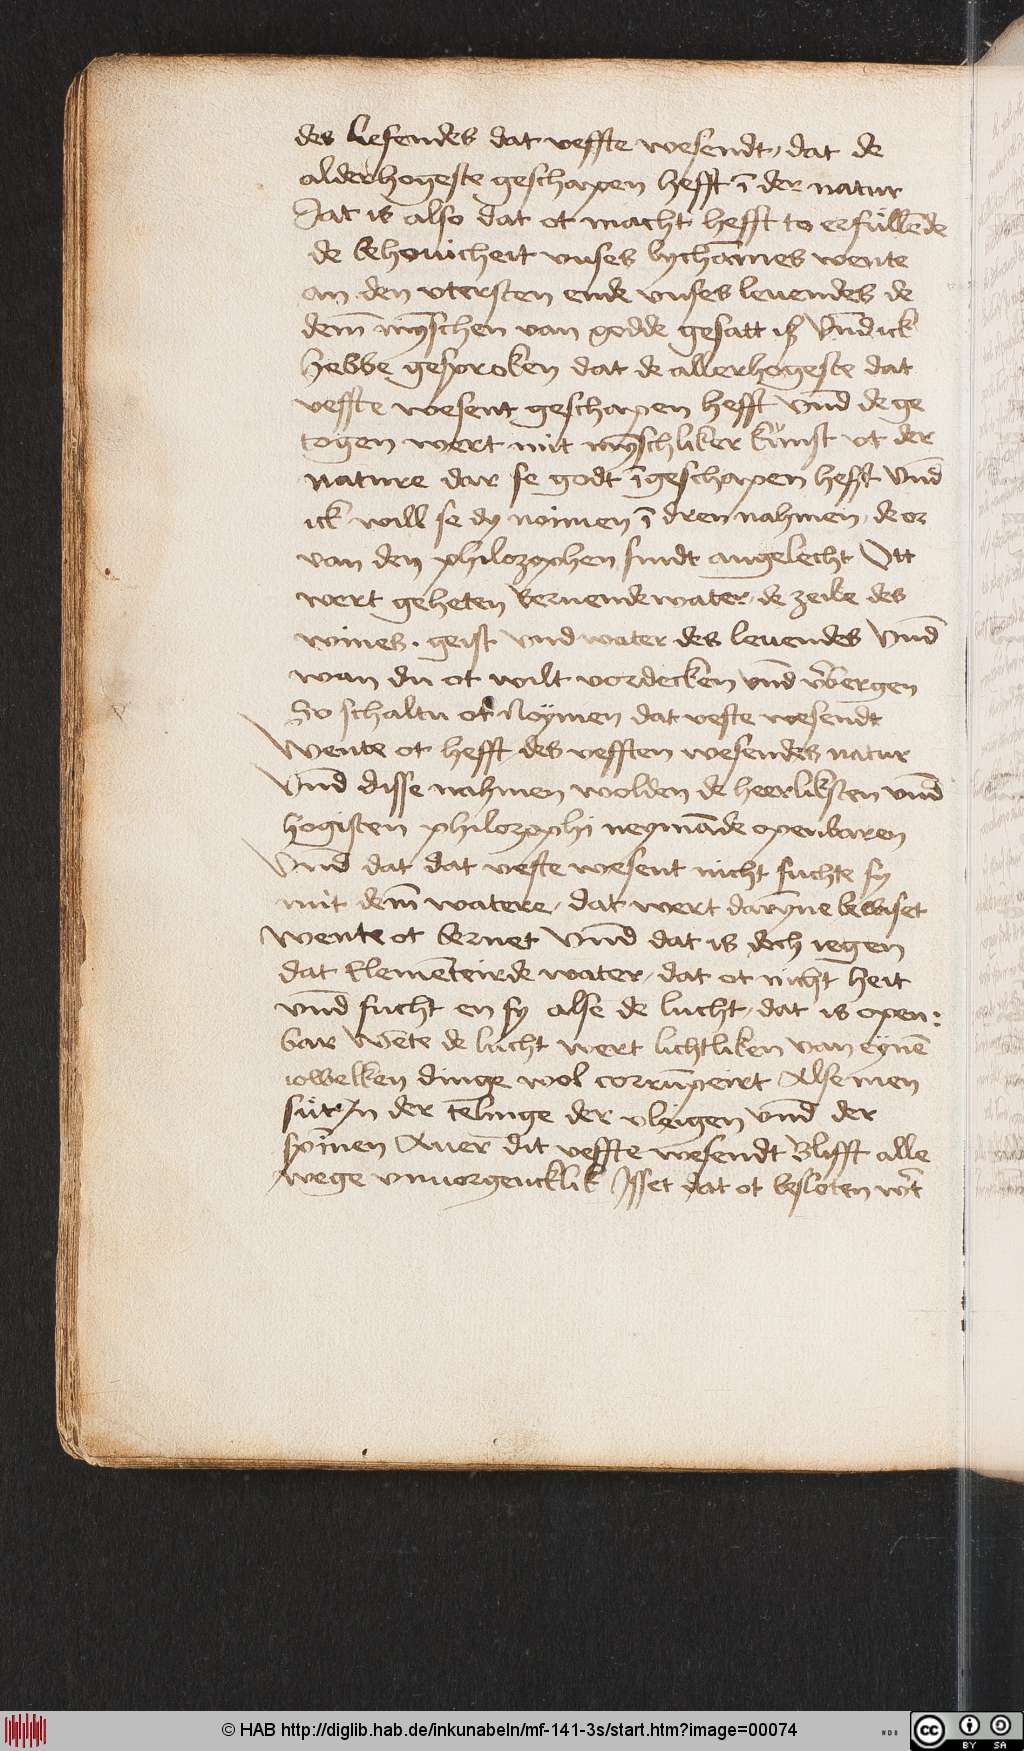 des liefendes dat veffte wesendt, dat de
alderhogeste geschapen hefft ī der natur
Dat is also dat ot macht hefft to erfüllēde
de behouicheit vnses lychāmes wente
an den vtersten ende vnses leuendes de
dem̄ mȳschen van godde gesatt iß Vn̄d ick
hebbe gesproken dat de allerhogeste dat
veffte wesent geschapen hefft Vn̄d de ge
togen wert mit mȳschliker kunst vt der
nature dar se godt īgeschapen hefft Vn̄d
ick will se dy nōmen ī dren nahmen, de er
van den philozophen sindt angelecht Ott
wert geheten bernende water, de zeile des
wines. geist vnd water des leuendes Vn̄d
wan du ot wilt vordecken vn̄d v̄bergen
So schaltu ot Noymen dat vefte wesendt
Wente ot hefft des vefften wesendes natur
Vn̄d disse nahmen wolden de heerliksten vn̄d
hogisten philozophi neymāde openbaren
Vnd dat dat vefte wesent nicht fuchte sy
mit dem̄ watere, dat wert darȳne bewiset
Wente ot bernet Vn̄d dat is doch iegen
dat Elemēteirde water, dat ot nicht heit
vn̄d fucht en sy alse de lucht, dat is open:
bar Wēte de lucht wert lichtliken van eynē
iowelken dinge wol corrūpeirt Alse men
süt In der tēlinge der vleigen vn̄d der
spīnen Auer dit veffte wesendt Blifft alle
wege vnuorgencklik Isset dat ot besloten w̄t
© HAB http://diglib.hab.de/inkunabeln/mf-141-3s/start.htm?image=00074
WDB
cc
BY SA